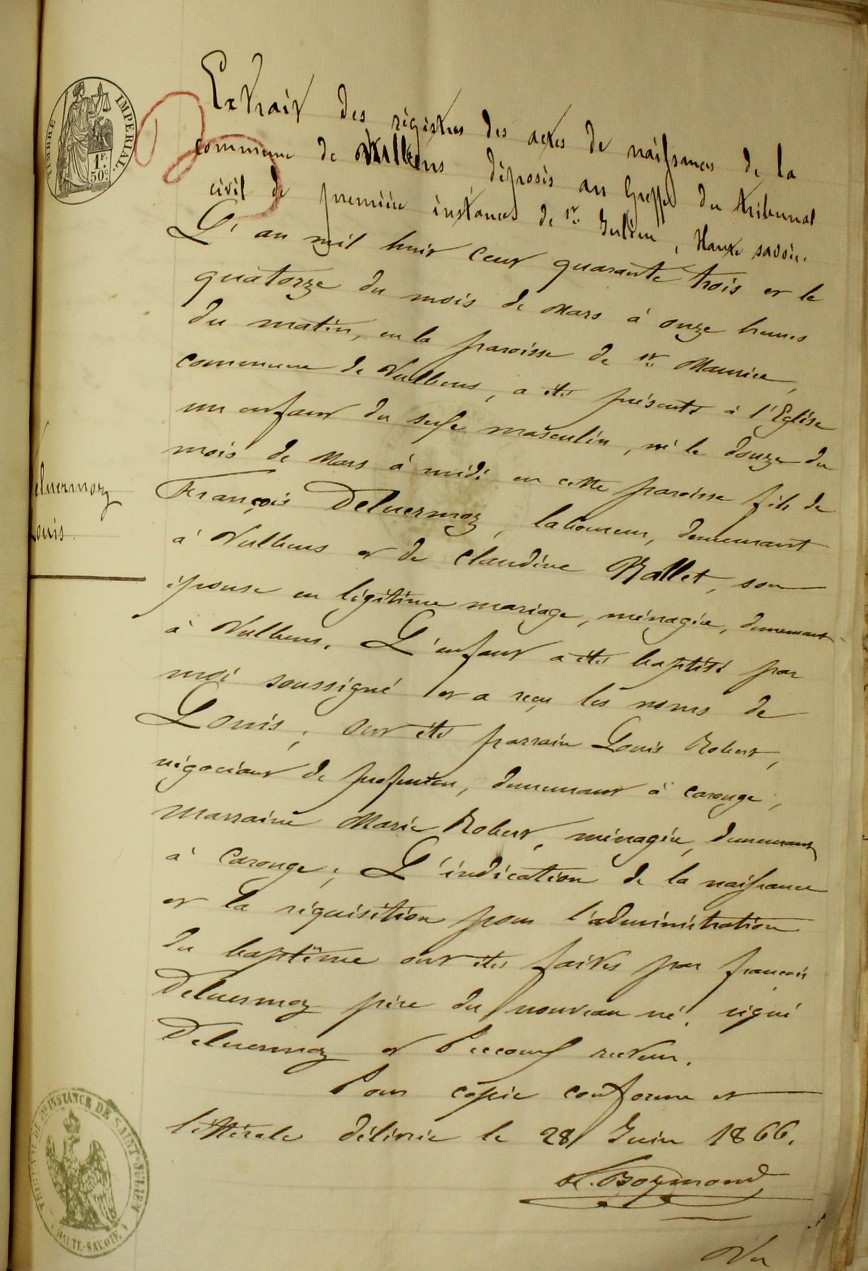 TIMBRE IMPERIAL.
1F.
50c.
Extrait des régistres des actes de naissances de la
commune de Vulbens déposés au Greffe du tribunal
civil de première instances de St. Julien, Haute savoie.
L'an mil huit cent quarante trois et le
quatorze du mois de Mars à onze heures
du matin, en la paroisse de St. Maurice,
commune de Vulbens, a été présenté à l'Eglise
un enfant du sexe masculin, né le douze du
mois de Mars à midi en cette paroisse fils de
Deluermoz
Louis.
François Deluermoz, laboureur, demeurant
à Vulbens et de claudine Rollet, son
épouse en légitime mariage, ménagère, demeurant
à Vulbens. L'enfant a été baptisé par
moi soussigné et a reçu les noms de
Louis; ont été parrain Louis Robert,
négociant de profession, demeurant à carouge;
Marraine Marie Robert, ménagère, demeurant
à Carouge; L'indication de la naissance
et la réquisition pour l'administration
du baptême ont été faites par françois
Deluermoz père du nouveau né. signé
Deluermoz et recteur.
Pour copie conforme et
littérale délivrée le 28 Juin 1866.
Boymond
Vu
TRIBUNAL DE 1re INSTANCE DE SAINT-JULIEN
(HAUTE-SAVOIE)